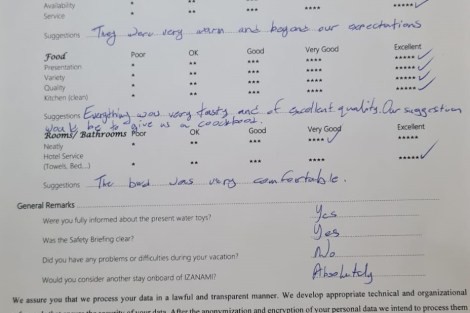 Availability
Service
Suggestions They were very warm and beyond our expectations
Food Poor OK Good Very Good Excellent
Presentation * ** *** **** *****
Variety * ** *** **** *****
Quality * ** *** **** *****
Kitchen (clean) * ** *** **** *****
Suggestions Everything was very tasty and of excellent quality. Our suggestion
would be to give us a cookbook.
Rooms/ Bathrooms Poor OK Good Very Good Excellent
Neatly * ** *** **** *****
Hotel Service * ** *** **** *****
(Towels, Bed...)
Suggestions The bed was very comfortable.
General Remarks
Were you fully informed about the present water toys? Yes
Was the Safety Briefing clear? Yes
Did you have any problems or difficulties during your vacation? No
Would you consider another stay onboard of IZANAMI? Absolutely
We assure you that we process your data in a lawful and transparent manner. We develop appropriate technical and organizational
of your data. After the anonymization and encryption of your personal data we intend to process them